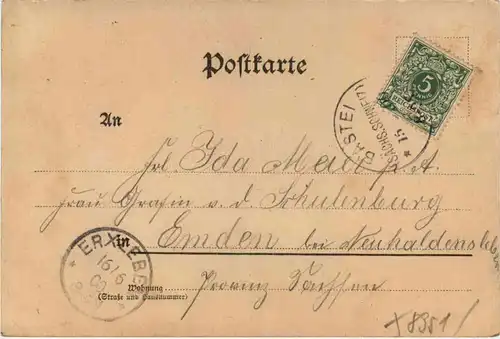 Postkarte
5
PFENNIG
BASTEI
(SÄCHS. SCHWEIZ)
15
An
Frl. Ida Maer p. A.
Frau Gräfin v. d. Schulenburg
in Emden bei Neuhaldensleben
Provinz Sachsen
Wohnung
(Straße und Hausnummer)
* ERXLEBE
16/6
00
X8951/